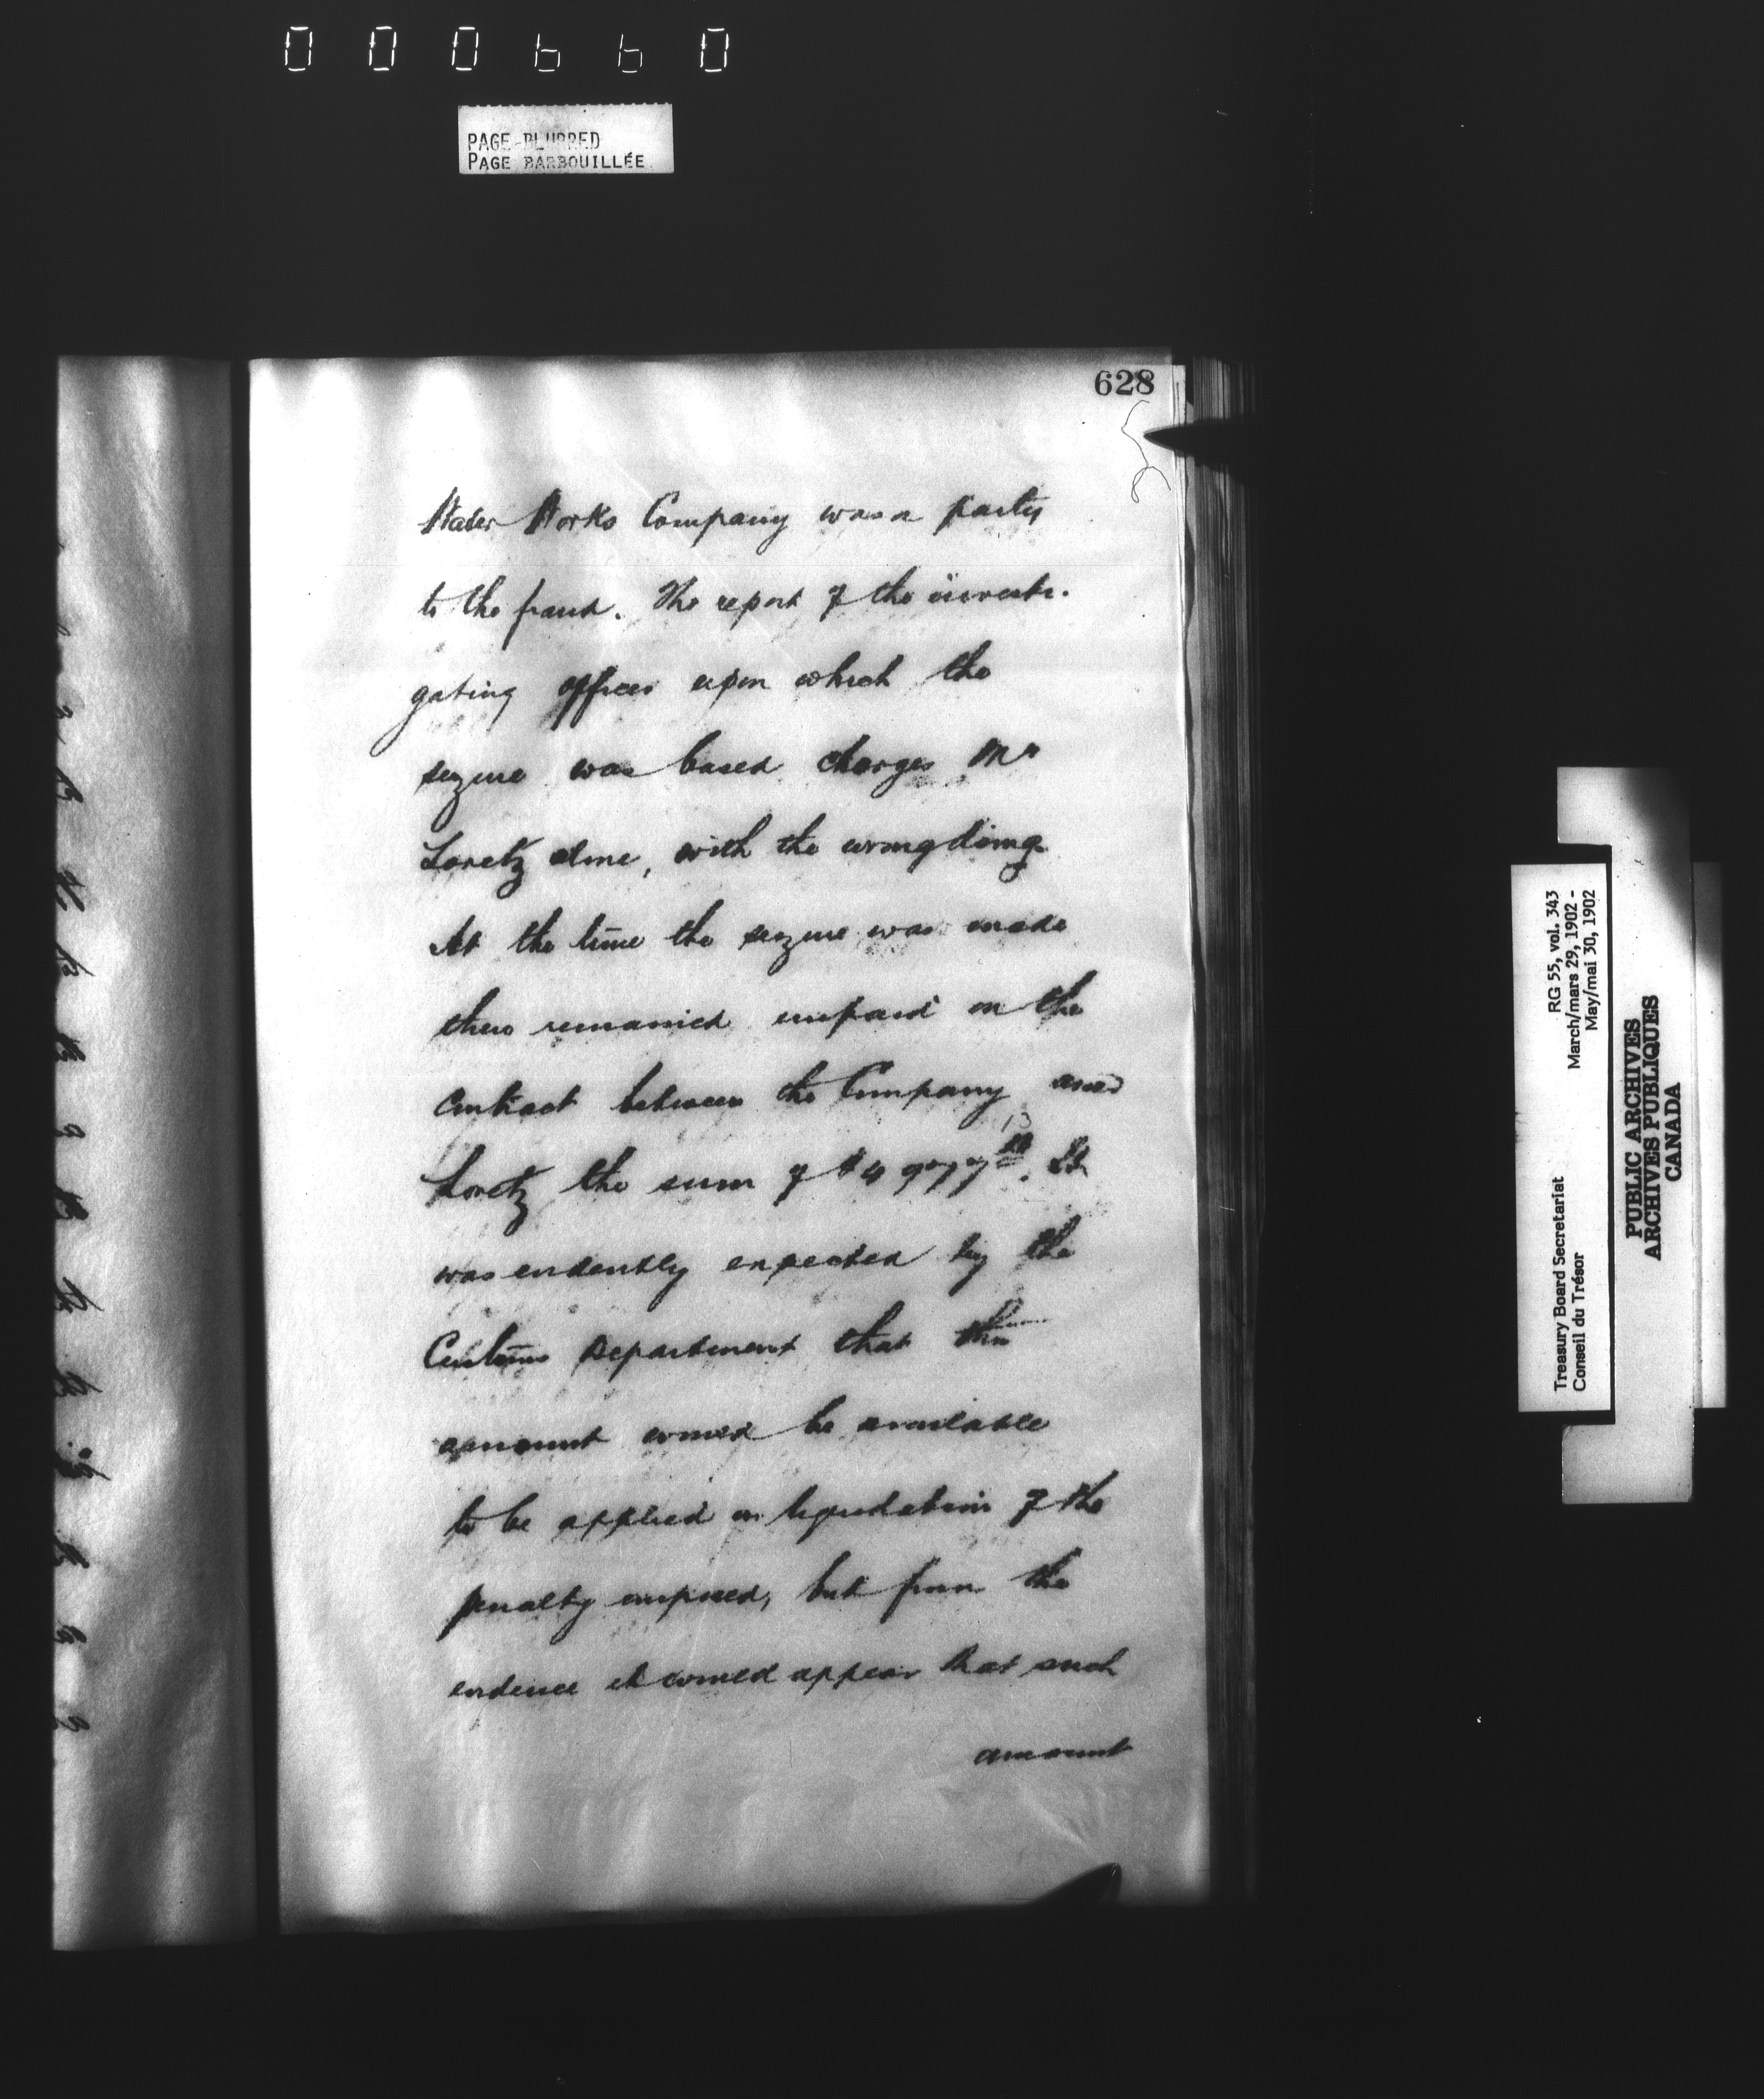 000660
PAGE BLURRED
PAGE BARBOUILLÉE
628
Water Works Company was a party
to the fraud. The report of the investi-
gating officer upon which the
seizure was based charges Mr
Loretz alone, with the wrongdoing.
At the time the seizure was made
there remained unpaid on the
contract between the Company and
Loretz the sum of $4977.13. It
was evidently expected by the
Customs Department that this
amount would be available
to be applied in liquidation of the
penalty imposed, but from the
evidence it would appear that such
amount
RG 55, vol. 343
March/mars 29, 1902 -
May/mai 30, 1902
Treasury Board Secretariat
Conseil du Trésor
PUBLIC ARCHIVES
ARCHIVES PUBLIQUES
CANADA